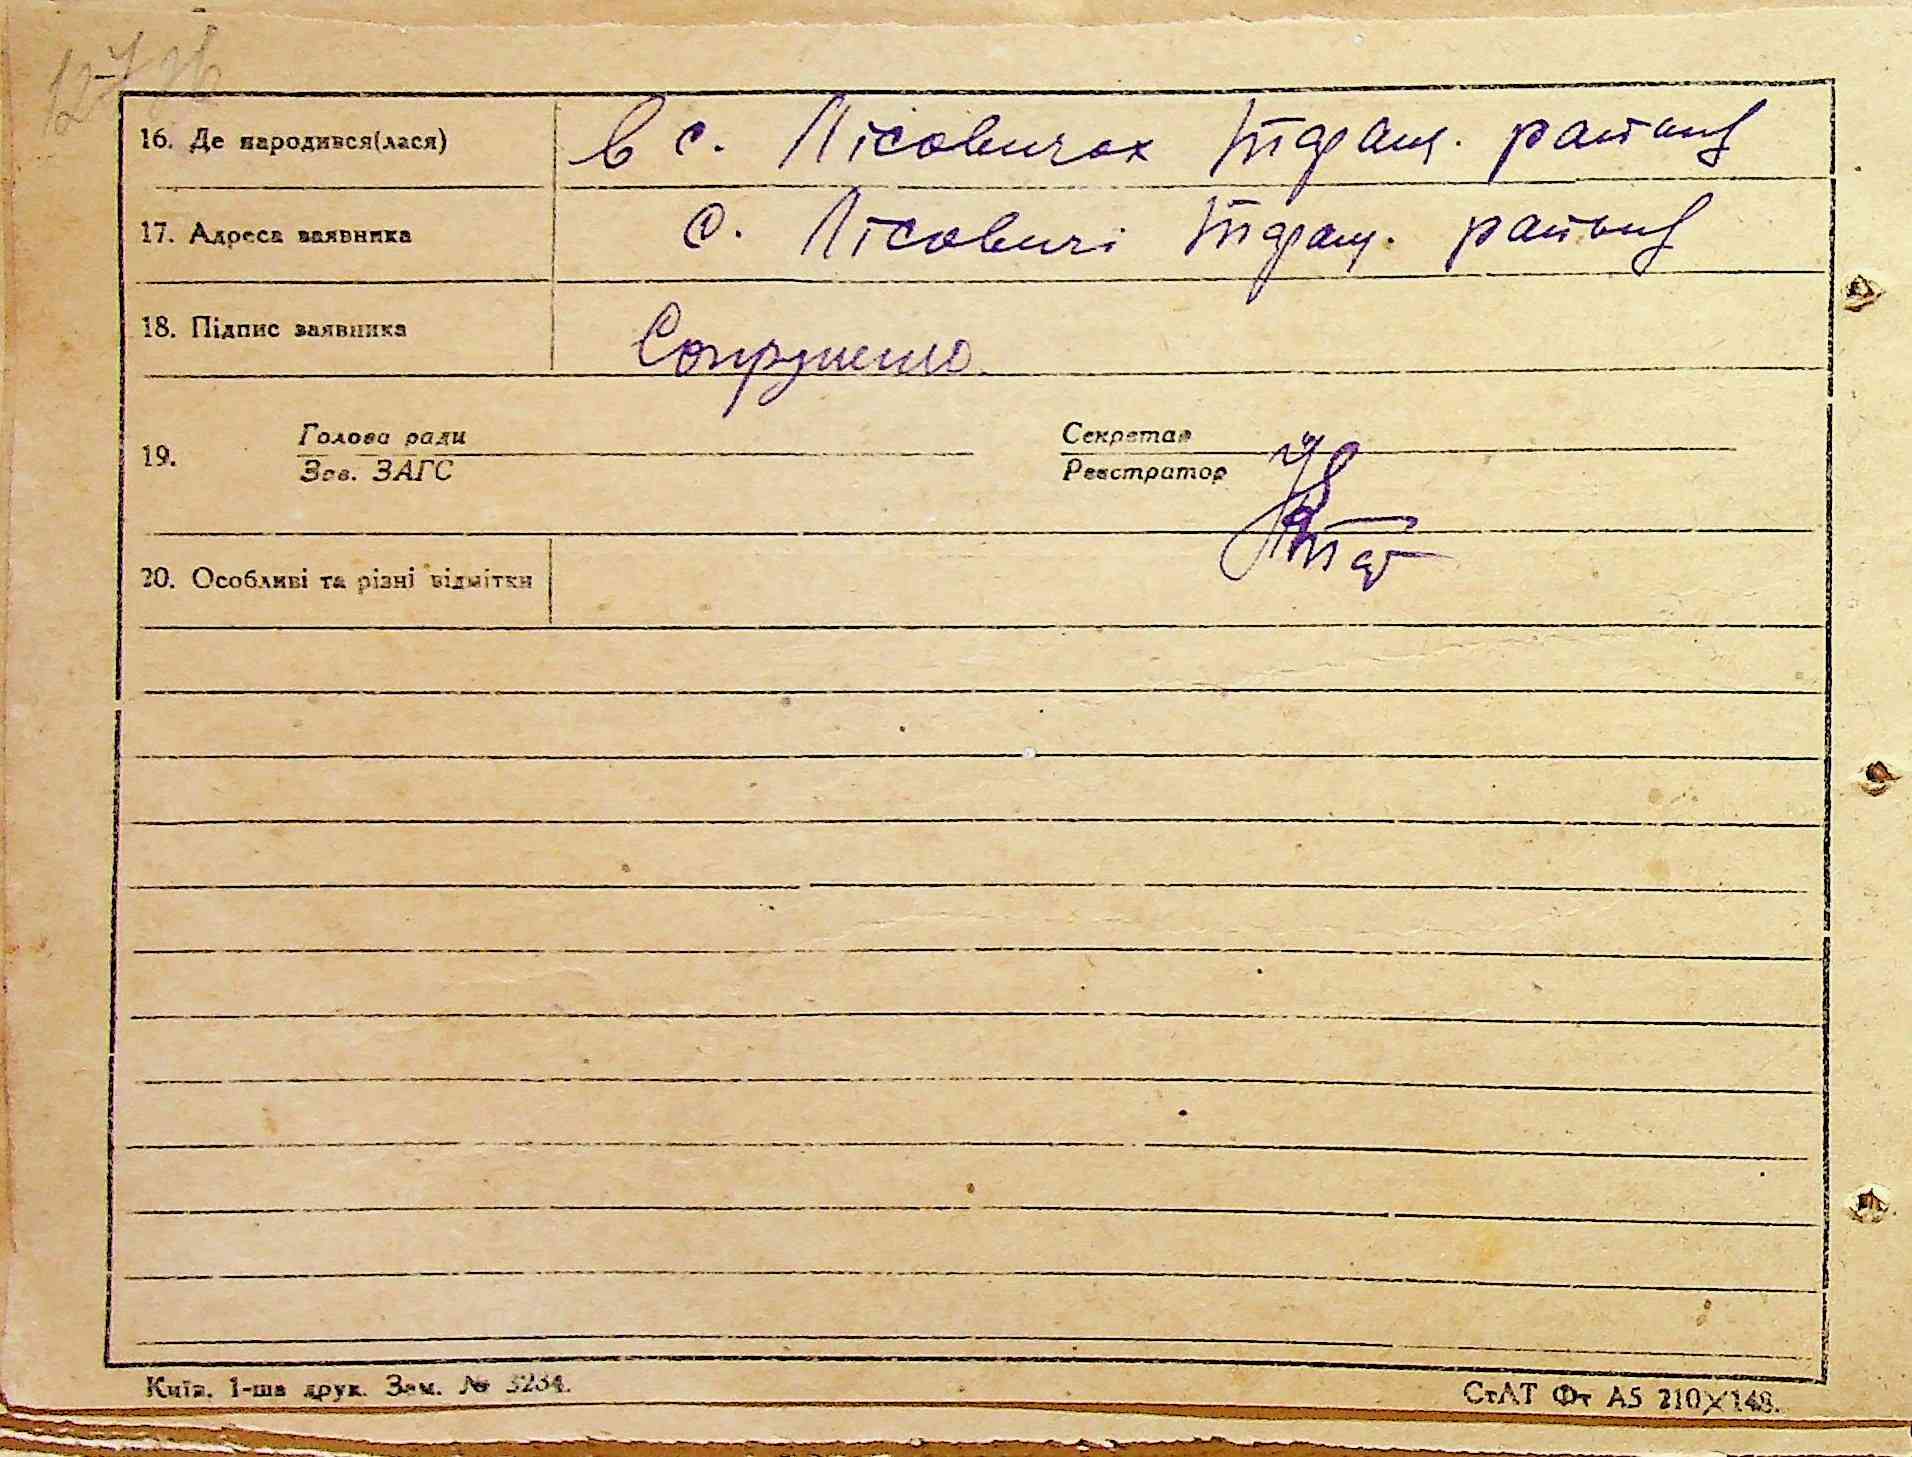 127 зв
16. Де народився(лася) в с. Лісовичах Таращ. району
17. Адреса заявника с. Лісовичі Таращ. району
18. Підпис заявника
19. Голова ради Секретар
Зав. ЗАГС Реєстратор
20. Особливі та різні відмітки
Київ. 1-ша друк. Зам. № 3234. СтАТ Фт А5 210×148.